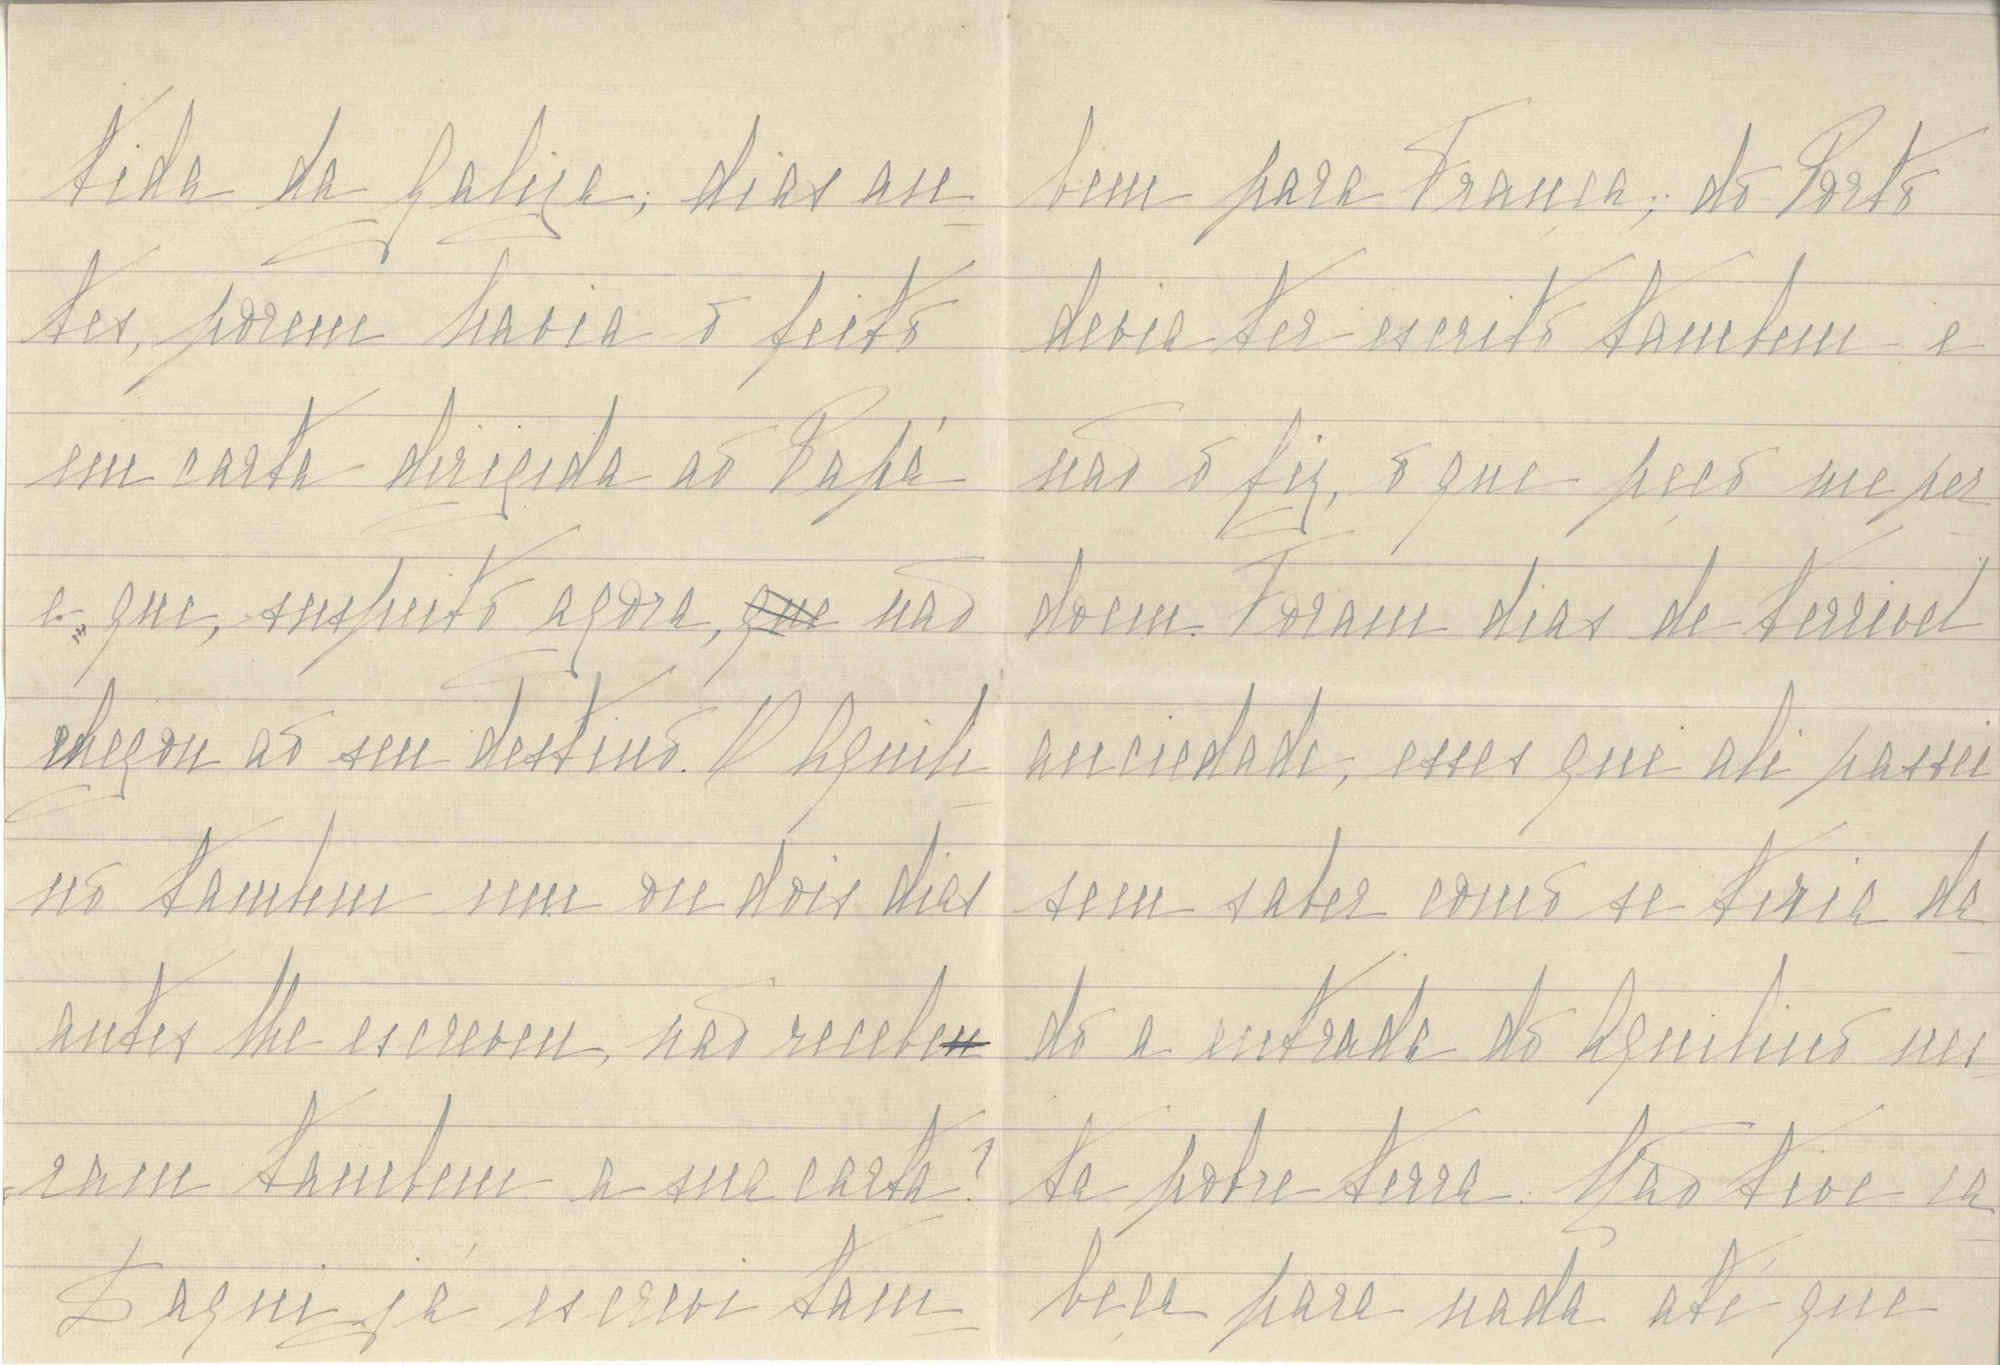 tida da Galiza; dias an
tes, porem havia o feito
em carta dirigida ao Papá
e que, suspeito agora, que não
chegou ao seu destino. O Aquili
no tambem um ou dois dias
antes lhe escreveu, não recebe
ram tambem a sua carta?
Daqui já escrevi tam
bem para França; do Porto
devia ter escrito tambem e
não o fiz, o que peço me per
doem. Foram dias de terrivel
anciedade, esses que ali passei
sem saber como se teria da
do a entrada do Aquilino nes
ta pobre terra. Não tive ca
beça para nada até que